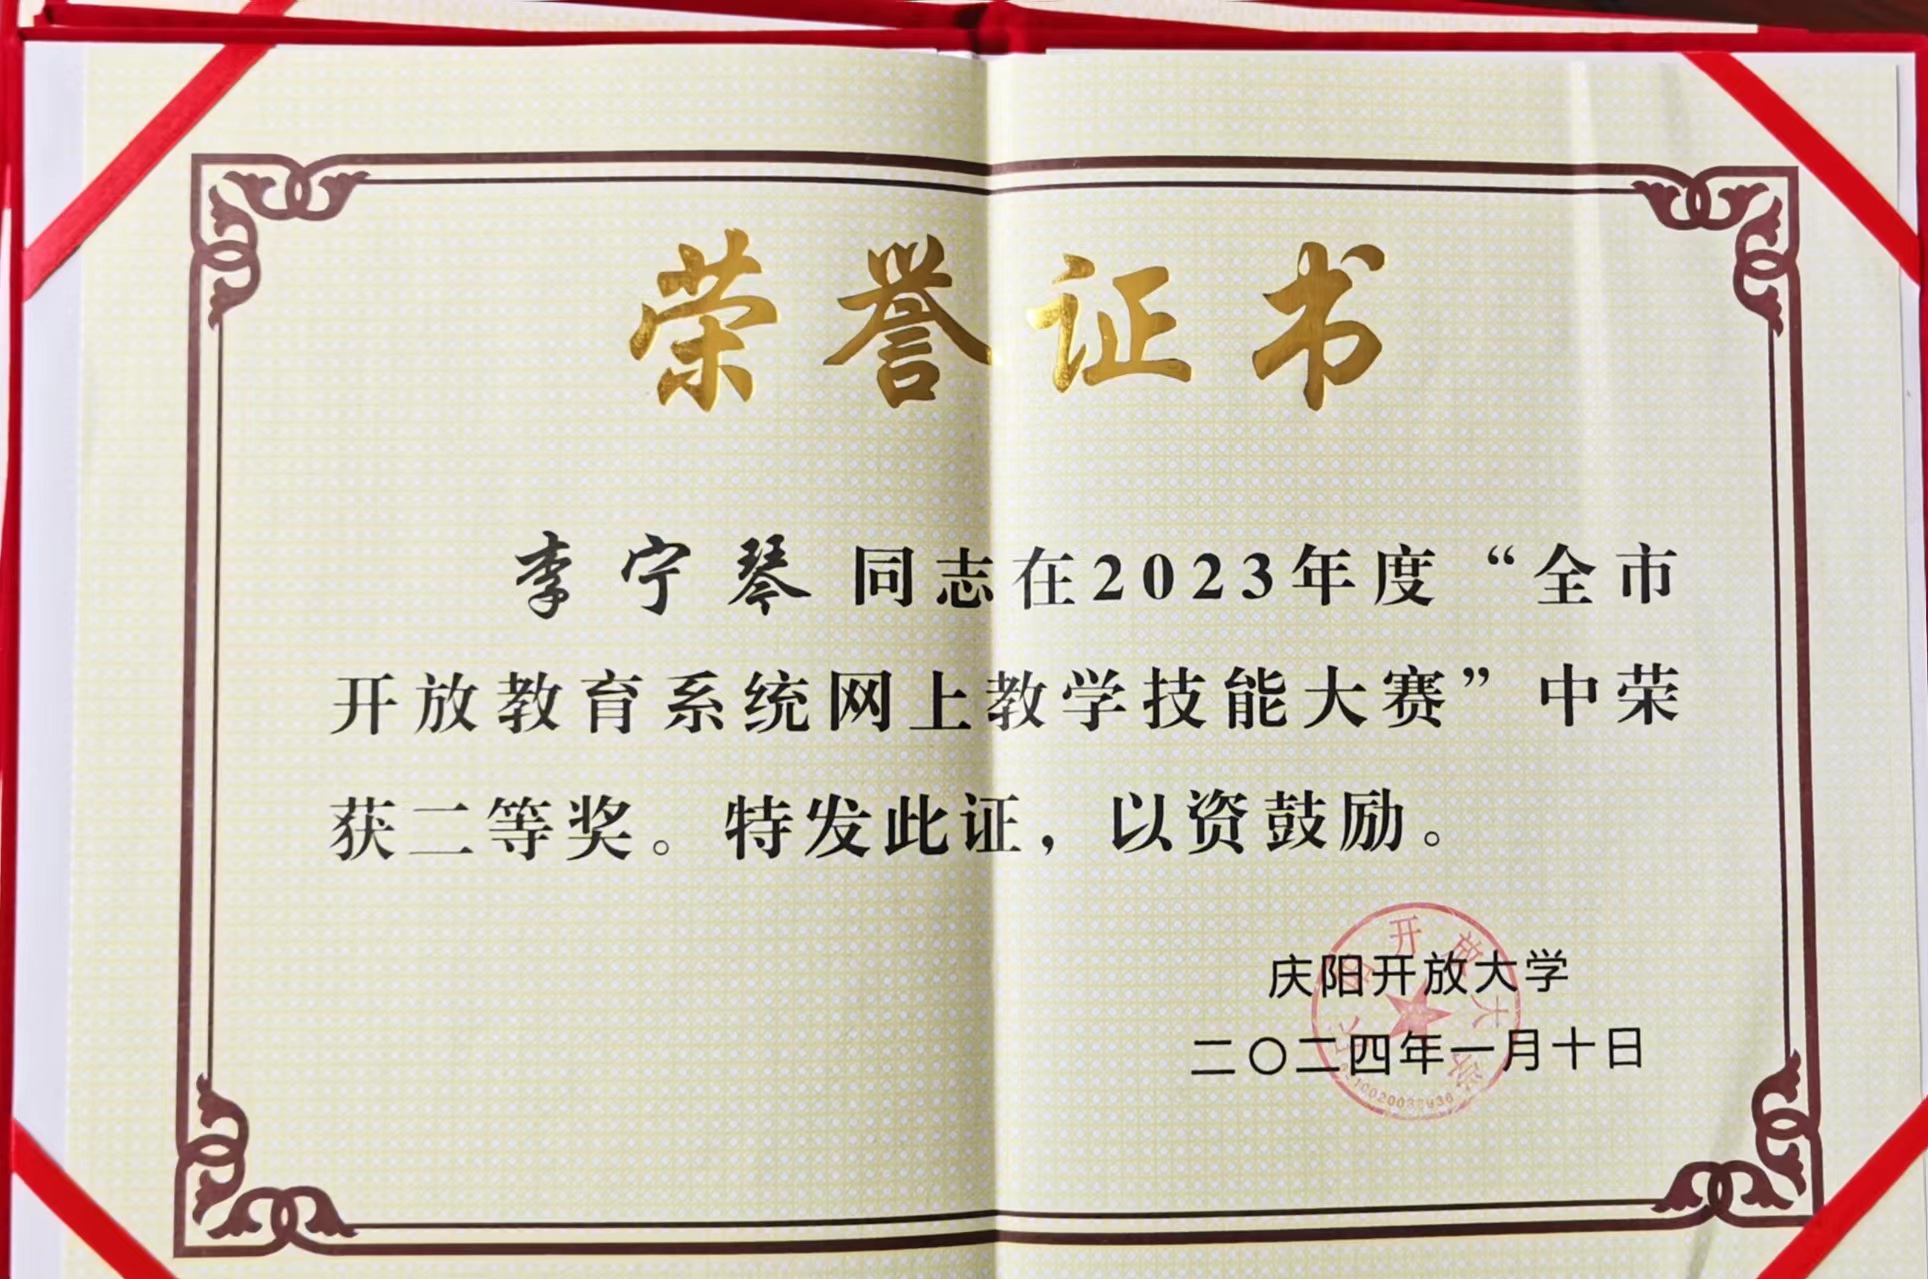 荣誉证书
李宁琴同志在2023年度“全市
开放教育系统网上教学技能大赛”中荣
获二等奖。特发此证，以资鼓励。
庆阳开放大学
二〇二四年一月十日